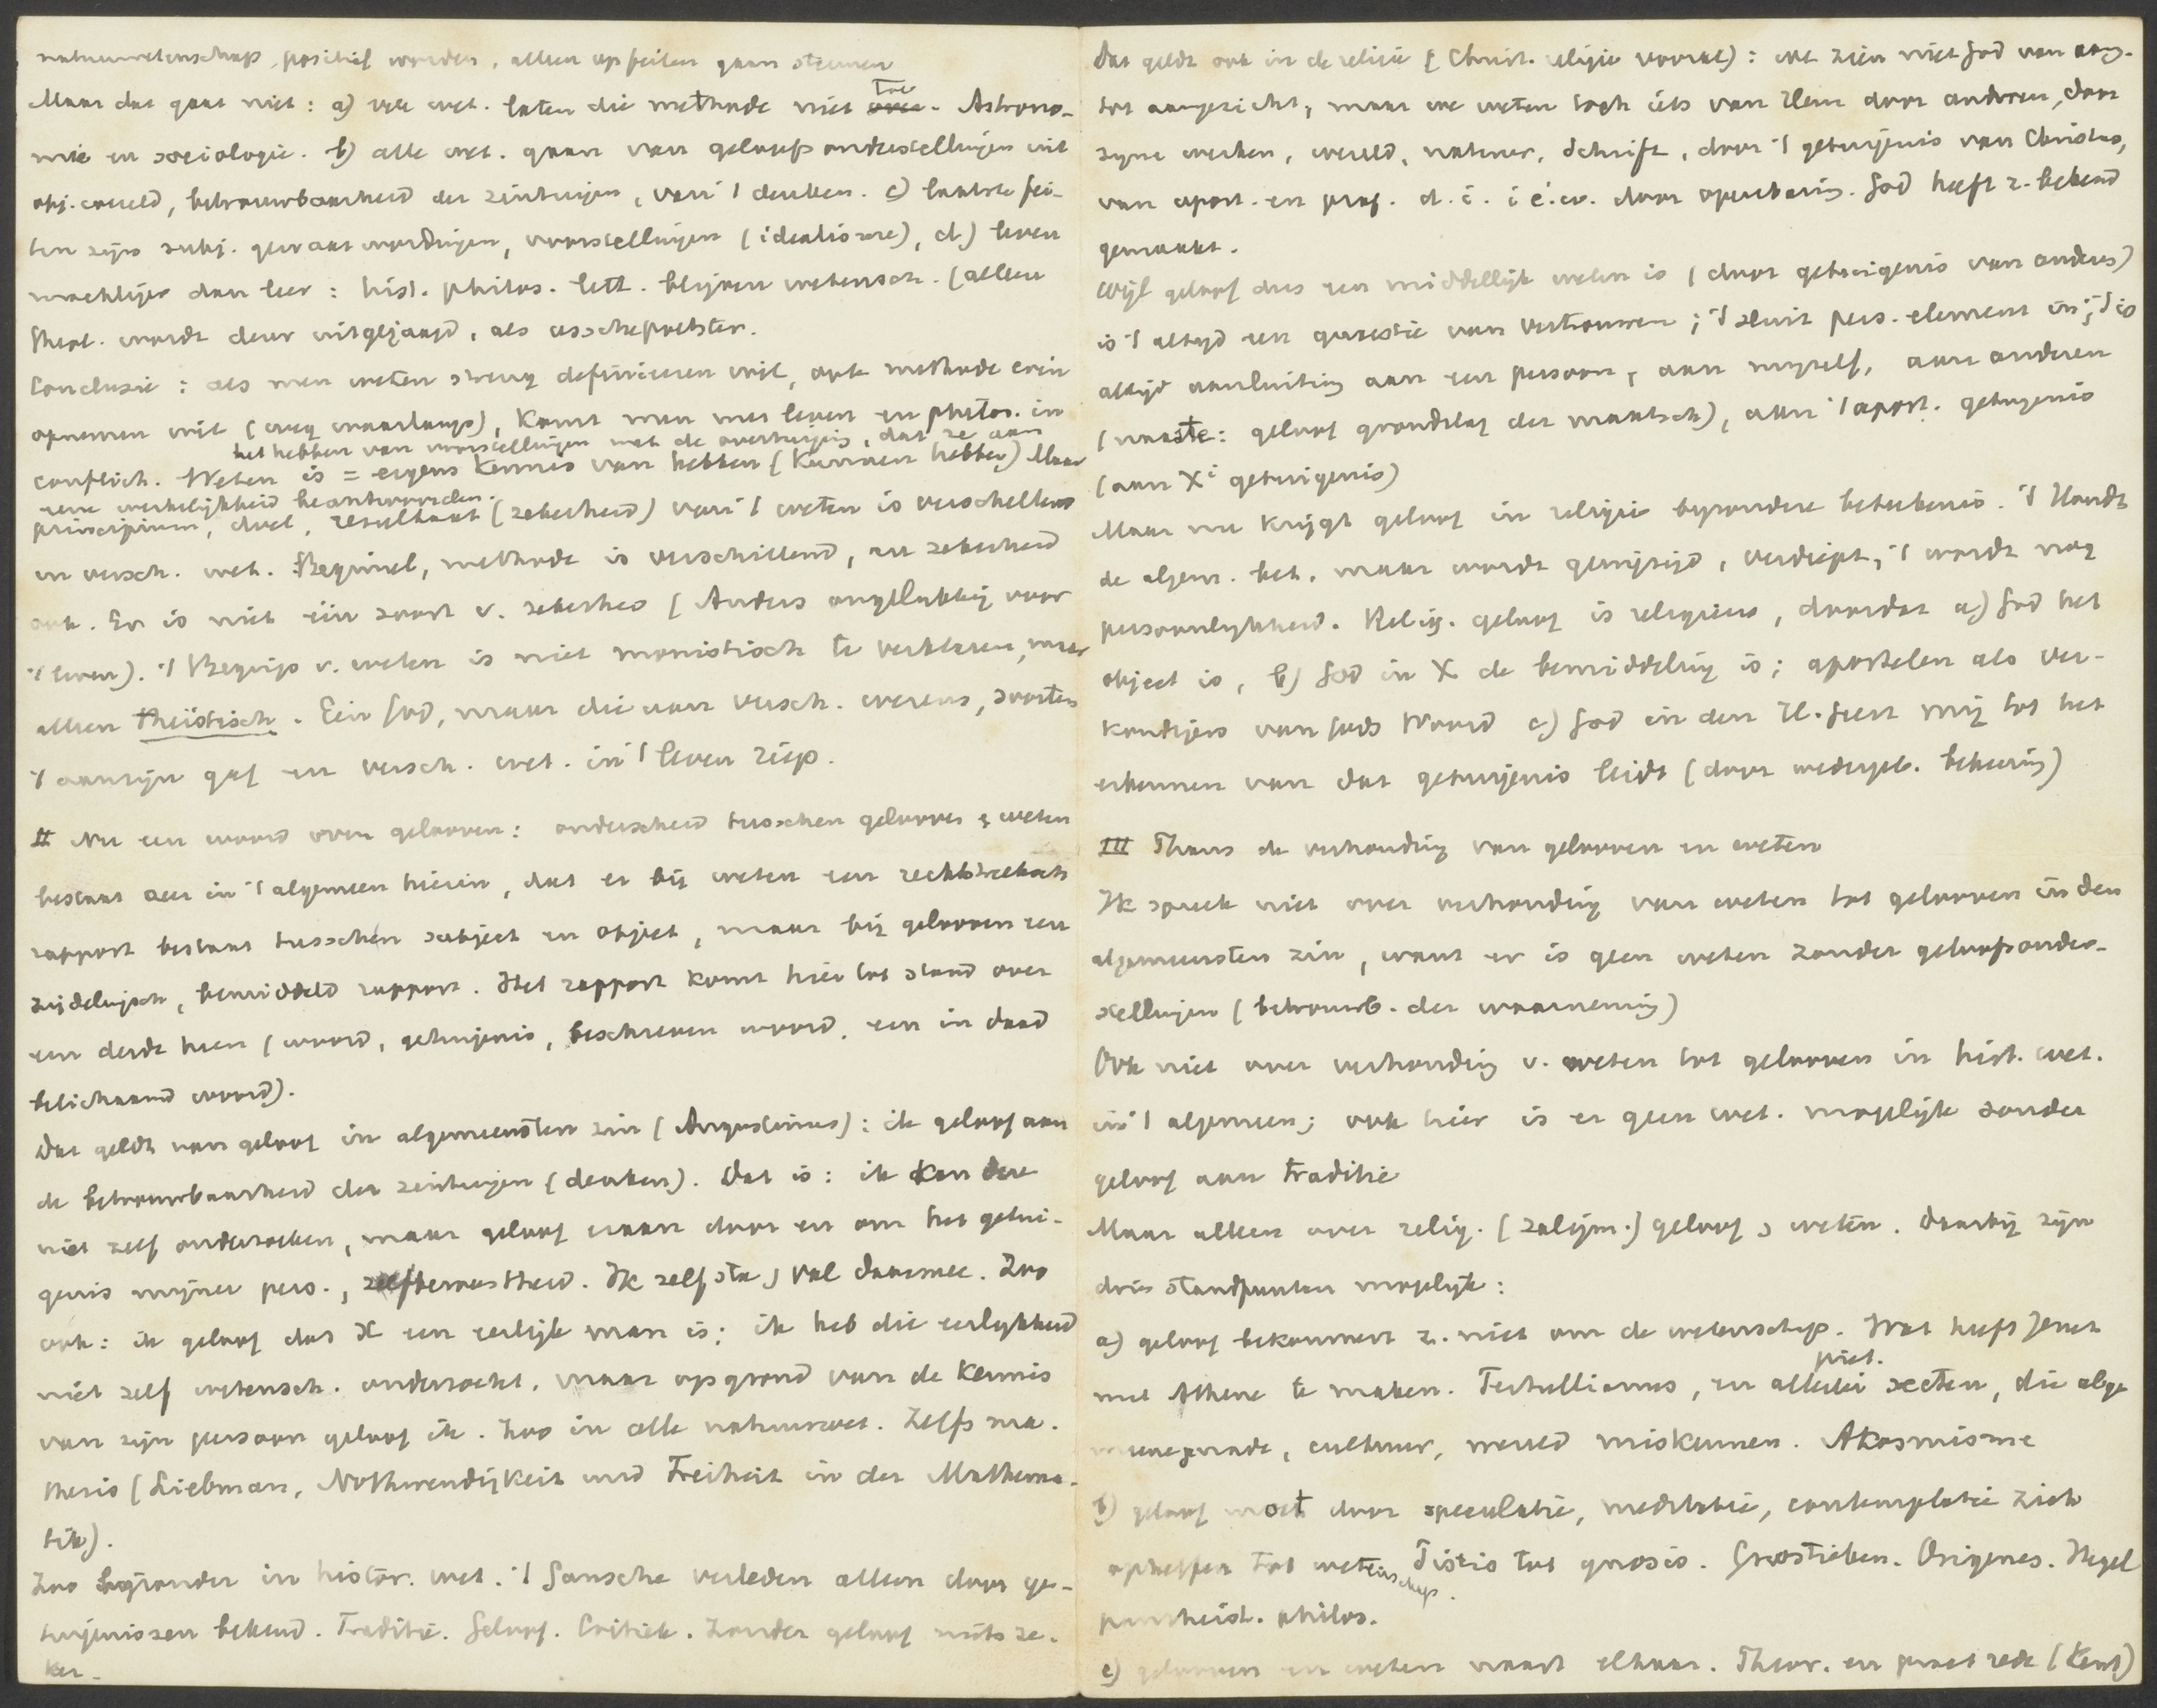 natuurwetenschap, positief worden, alleen op feiten gaan steunen
Maar dat gaat niet: a) vele wet. laten die methode niet toe. Astrono-
mie en sociologie. b) alle wet. gaan van geloofsonderstellingen uit
obj. wereld, betrouwbaarheid der zintuigen, van 't denken. c) laatste fei-
ten zijn subj. gewaarwordingen, voorstellingen (idealisme), d.) leven
machtiger dan leer: hist. philos. lett. blijven wetensch. (alleen
theol. wordt deur uitgejaagd, als asschepoetster.
Conclusie: als men weten streng definieeren wil, ook methode erin
opnemen wil (weg waarlangs), komt men met leven en philos. in
het hebben van voorstellingen met de overtuiging, dat ze aan
conflict. Weten is = ergens kennis van hebben (kunnen hebben) Maar
eene werkelijkheid beantwoorden.
principium, doel, resultaat (zekerheid) van 't weten is verschillend
in versch. wet. Beginsel, methode is verschillend, en zekerheid
ook. Er is niet één soort v. zekerheid (Anders ongelukkig voor
't leven). 't Begrip v. weten is niet monistisch te verklaren, maar
alleen theïstisch. Eén God, maar die aan versch. wezens, soorten
't aanzijn gaf en versch. wet. in 't leven riep.
II Nu een woord over gelooven: onderscheid tusschen gelooven & weten
bestaat in 't algemeen hierin, dat er bij weten een rechtstreeksch
rapport bestaat tusschen subject en object, maar bij gelooven een
zijdelingsch, bemiddeld rapport. Het rapport komt hier tot stand over
een derde heen (woord, getuigenis, beschreven woord, een in daad
belichaamd woord).
Dat geldt van geloof in algemeensten zin (Augustinus): ik geloof aan
de betrouwbaarheid der zintuigen (denken). Dat is: ik kan deze
niet zelf onderzoeken, maar geloof eraan door en om het getui-
genis mijner pers., zelfbewustheid. Ik zelf sta & val daarmee. Zoo
ook: ik geloof dat X een eerlijk man is; ik heb die eerlijkheid
niet zelf wetensch. onderzocht, maar op grond van de kennis
van zijn persoon geloof ik. Zoo in alle natuurwet. Zelfs ma-
thesis (Liebman, Nothwendigkeit und Freiheit in der Mathema-
tik).
Zoo bijzonder in histor. wet. 't Gansche verleden alleen door ge-
tuigenissen bekend. Traditie. Geloof. Critiek. Zonder geloof niets ze-
ker.
Dat geldt ook in de religie (Christ. religie vooral): wel zien niet God van aang.
tot aangezicht, maar we weten toch iets van Hem door anderen, door
zijne werken, wereld, natuur, Schrift, door 't getuigenis van Christus,
van apost. en prof. d. i. i é.w. door openbaring. God heeft z. bekend
gemaakt.
Wijl geloof dus een middellijk weten is (door getuigenis van anderen)
is 't altijd een quaestie van vertrouwen; 't sluit pers. element in; 't is
altijd aansluiting aan een persoon, aan mijzelf, aan anderen
(naaste: geloof grondslag der maatsch), aan 't apost. getuigenis
(aan Xi getuigenis)
Maar nu krijgt geloof in religie bijzondere beteekenis. 't Houdt
de algem. bet. maar wordt gewijzigd, verdiept; 't wordt nog
persoonlijkheid. Relig. geloof is religieus, doordat a) God het
object is, b) God in X de bemiddeling is; apostelen als ver-
kondigers van Gods Woord c) God in den H. Geest mij tot het
erkennen van dat getuigenis leidt (door wedergeb. bekeering)
III Thans de verhouding van gelooven en weten
Ik spreek niet over verhouding van weten tot gelooven in den
algemeensten zin, want er is geen weten zonder geloofsonder-
stellingen (betrouwb. der waarneming)
Ook niet over verhouding v. weten tot gelooven in hist. wet.
in 't algemeen; ook hier is er geen wet. mogelijk zonder
geloof aan traditie
Maar alleen over relig. (zaligm.) geloof & weten. Daarbij zijn
drie standpunten mogelijk:
a) geloof bekommert z. niet om de wetenschap. Wat heeft Jeruz
met Athene te maken. Tertullianus, en allerlei piet. secten, die alge
meene genade, cultuur, wereld miskennen. Akosmisme
b) geloof moet door speculatie, meditatie, contemplatie zich
opheffen tot wetenschap. Pistis tot gnosis. Gnostieken. Origenes. Hegel
pantheist. philos.
c) gelooven en weten naast elkaar. Theor. en pract rede (Kant)